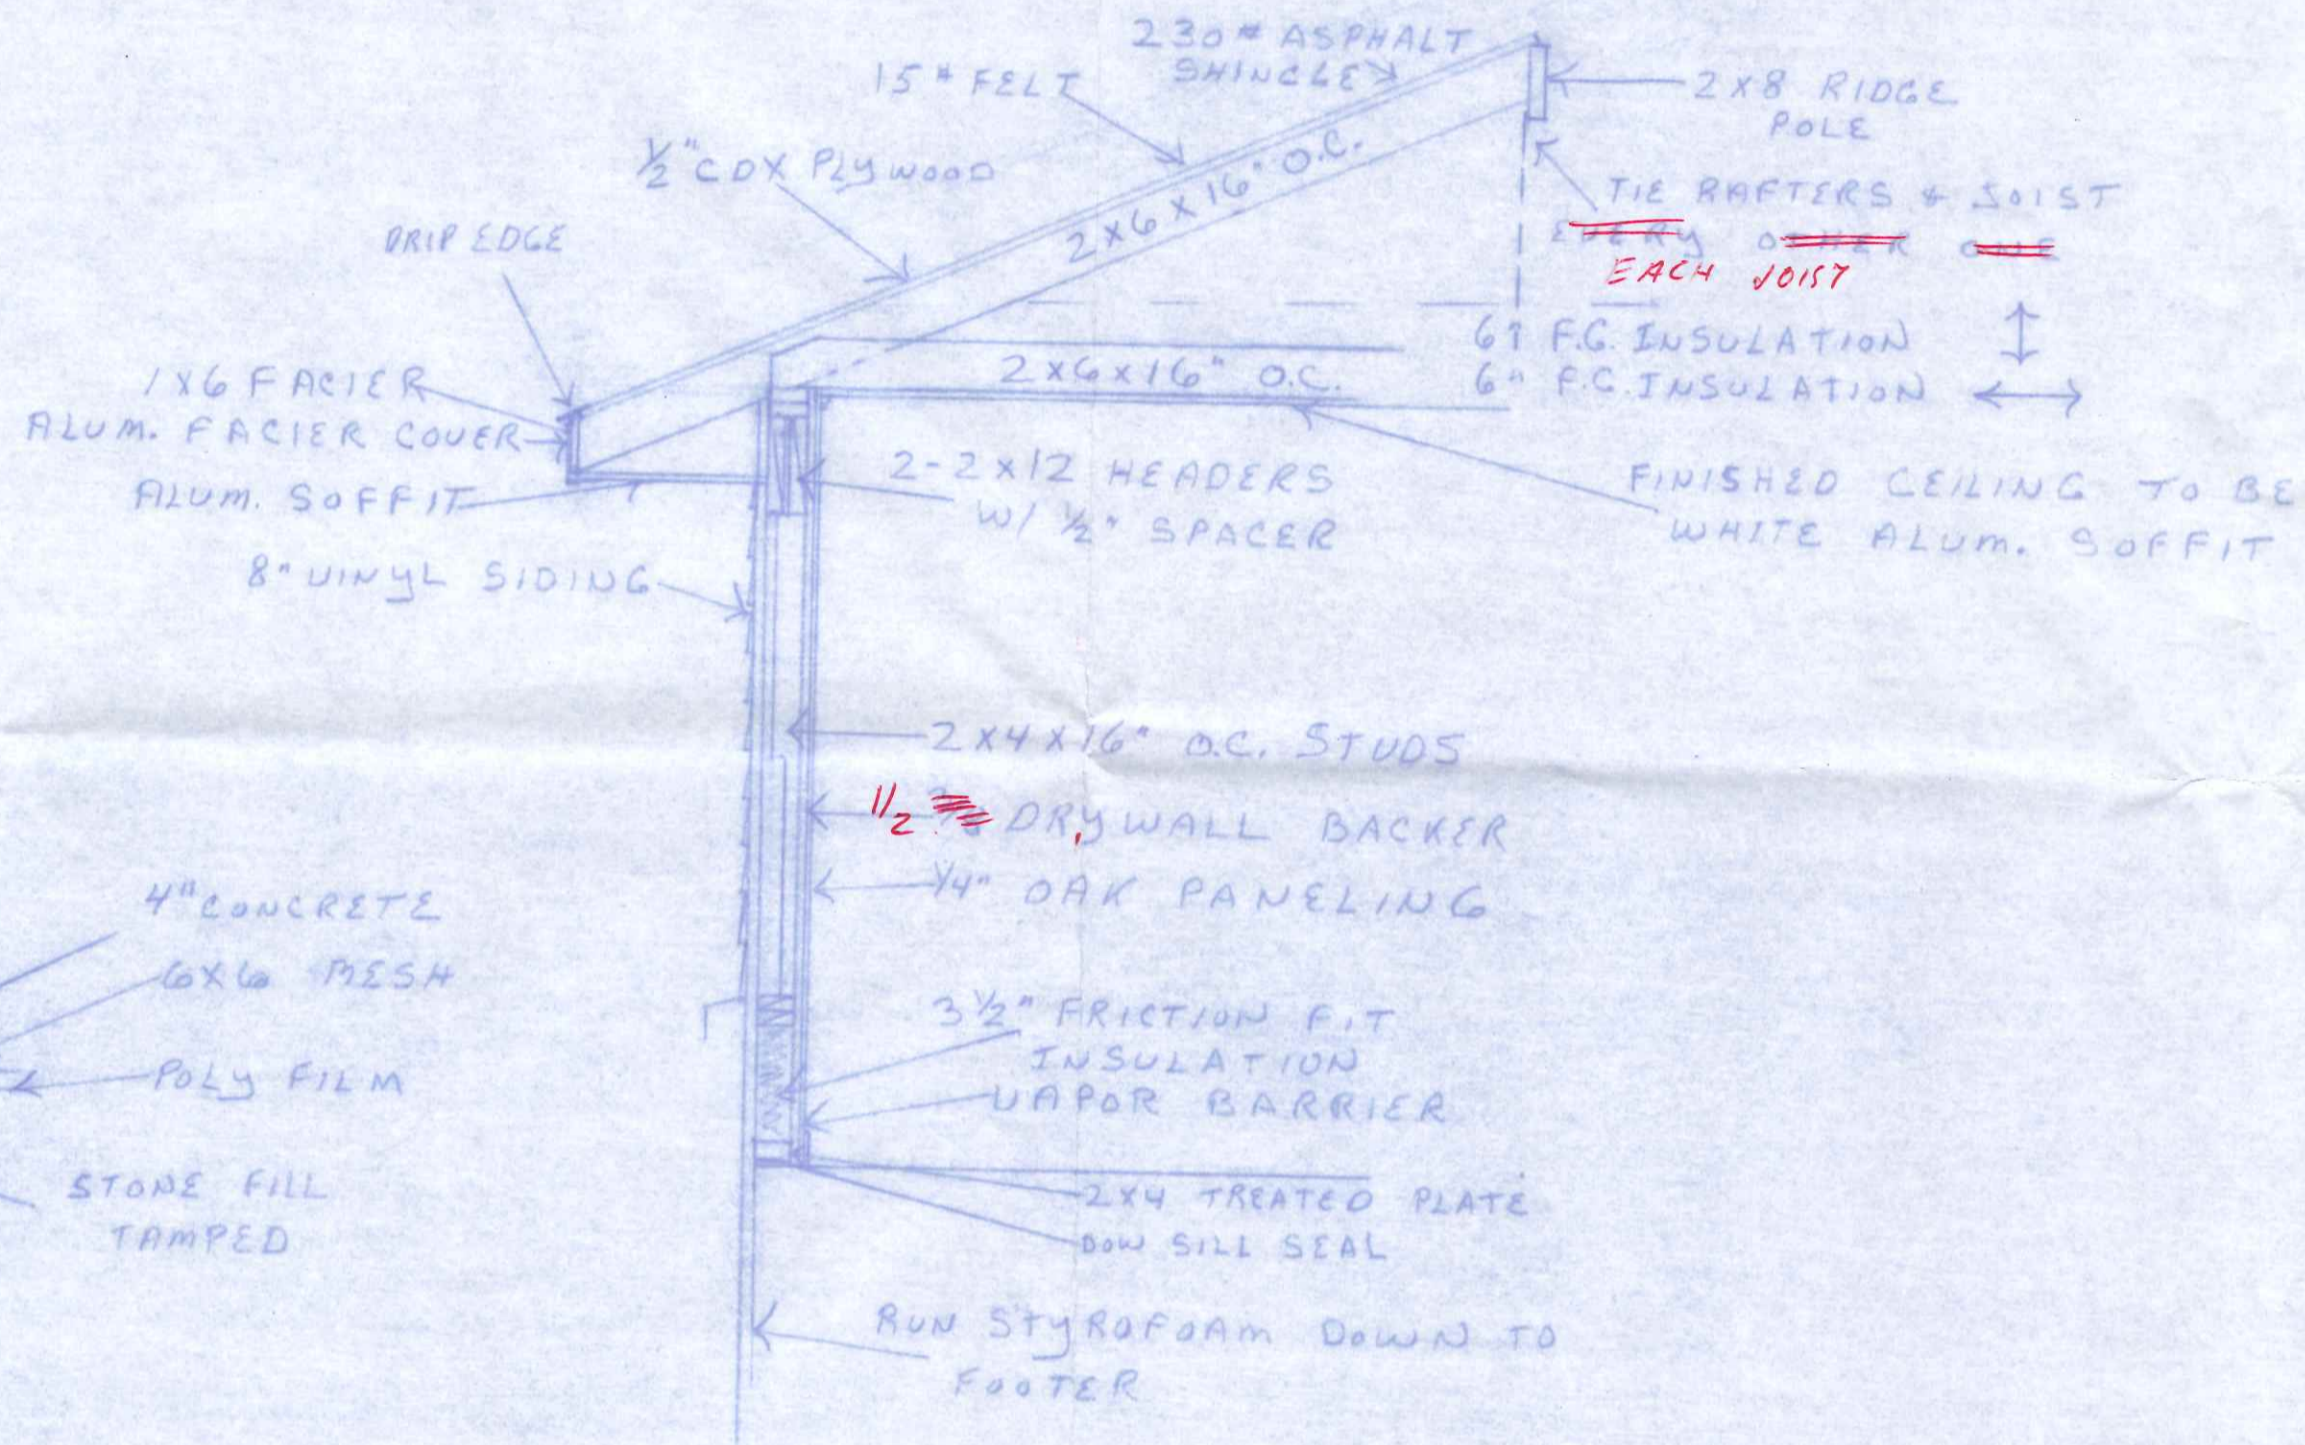 230# ASPHALT
SHINGLE
15# FELT
2X8 RIDGE
POLE
1/2" CDX PLYWOOD
2X6X16" O.C.
TIE RAFTERS & JOIST
EVERY OTHER ONE
EACH JOIST
DRIP EDGE
6" F.G. INSULATION
2X6X16" O.C.
6" F.G. INSULATION
1X6 FACIER
ALUM. FACIER COVER
ALUM. SOFFIT
2-2X12 HEADERS
W/ 1/2" SPACER
FINISHED CEILING TO BE
WHITE ALUM. SOFFIT
8" VINYL SIDING
2X4X16" O.C. STUDS
1/2 DRYWALL BACKER
1/4" OAK PANELING
4" CONCRETE
6X6 MESH
POLY FILM
STONE FILL
TAMPED
3 1/2" FRICTION FIT
INSULATION
VAPOR BARRIER
2X4 TREATED PLATE
DOW SILL SEAL
RUN STYROFOAM DOWN TO
FOOTER